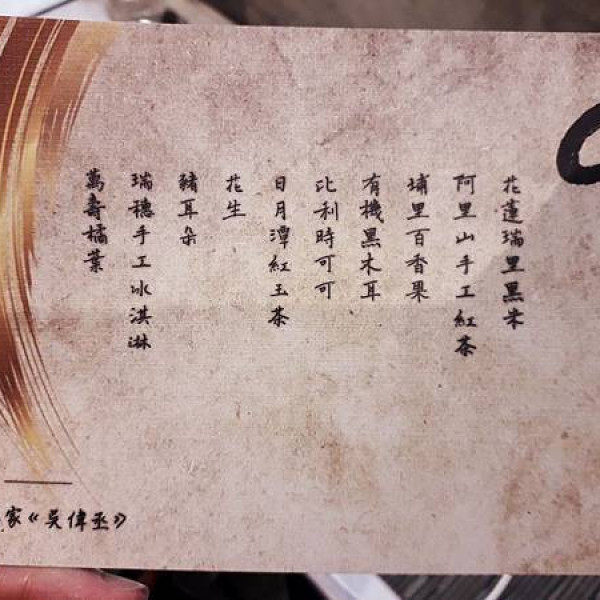 花蓮瑞里黑米
阿里山手工紅茶
埔里百香果
有機黑木耳
比利時可可
日月潭紅玉茶
花生
豬耳朵
瑞穗手工冰淇淋
萬壽橘葉
家《吳偉丞》